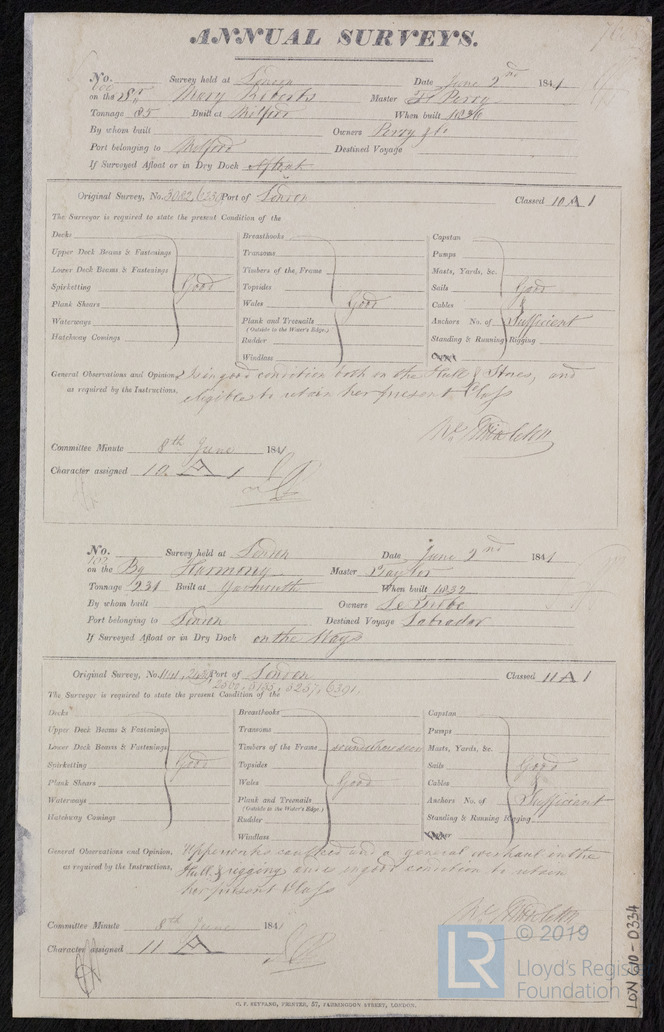 ANNUAL SURVEYS.
No. Survey held at London Date June 2nd 1841
on the Sr Mary Roberts Master Perry
Tonnage 85 Built at Milford When built 1836
By whom built Owners Perry & Co
Port belonging to Milford Destined Voyage
If Surveyed Afloat or in Dry Dock Afloat
Original Survey, No. 3082, Port of London Classed 10 A 1
The Surveyor is required to state the present Condition of the
Decks Breasthooks Capstan
Upper Deck Beams & Fastenings Transoms Pumps
Lower Deck Beams & Fastenings Timbers of the Frame Masts, Yards, &c.
Spirketting Good Topsides Sails Good
Plank Shears Wales Good Cables &
Waterways Plank and Treenails Anchors No. of Sufficient
(Outside to the Water's Edge.)
Hatchway Comings Rudder Standing & Running Rigging
Windlass
General Observations and Opinion, Is in good condition both in the Hull & Stores, and
as required by the Instructions. eligible to retain her present Class
Committee Minute 8th June 1841
Character assigned 10 A 1
No. 107 Survey held at London Date June 2nd 1841
on the Bg Harmony Master Taylor
Tonnage 231 Built at Yarmouth When built 1832
By whom built Owners
Port belonging to London Destined Voyage Labrador
If Surveyed Afloat or in Dry Dock on the Ways
Original Survey, No. Port of London Classed 11 A 1
5257, 6391.
The Surveyor is required to state the present Condition of the
Decks Breasthooks Capstan
Upper Deck Beams & Fastenings Transoms Pumps
Lower Deck Beams & Fastenings Timbers of the Frame sound where seen Masts, Yards, &c.
Spirketting Good Topsides Sails Good
Plank Shears Wales Good Cables &
Waterways Plank and Treenails Anchors No. of Sufficient
(Outside to the Water's Edge.)
Hatchway Comings Rudder Standing & Running Rigging
Windlass
General Observations and Opinion, Upperworks caulked and a general overhaul in the
as required by the Instructions. Hull & rigging and is in good condition to retain
her present Class
Committee Minute 8th June 1841
Character assigned 11 A
C. F. SEYFANG, PRINTER, 57, FARRINGDON STREET, LONDON.
LON 610-0334
LR © 2019
Lloyd's Register
Foundation